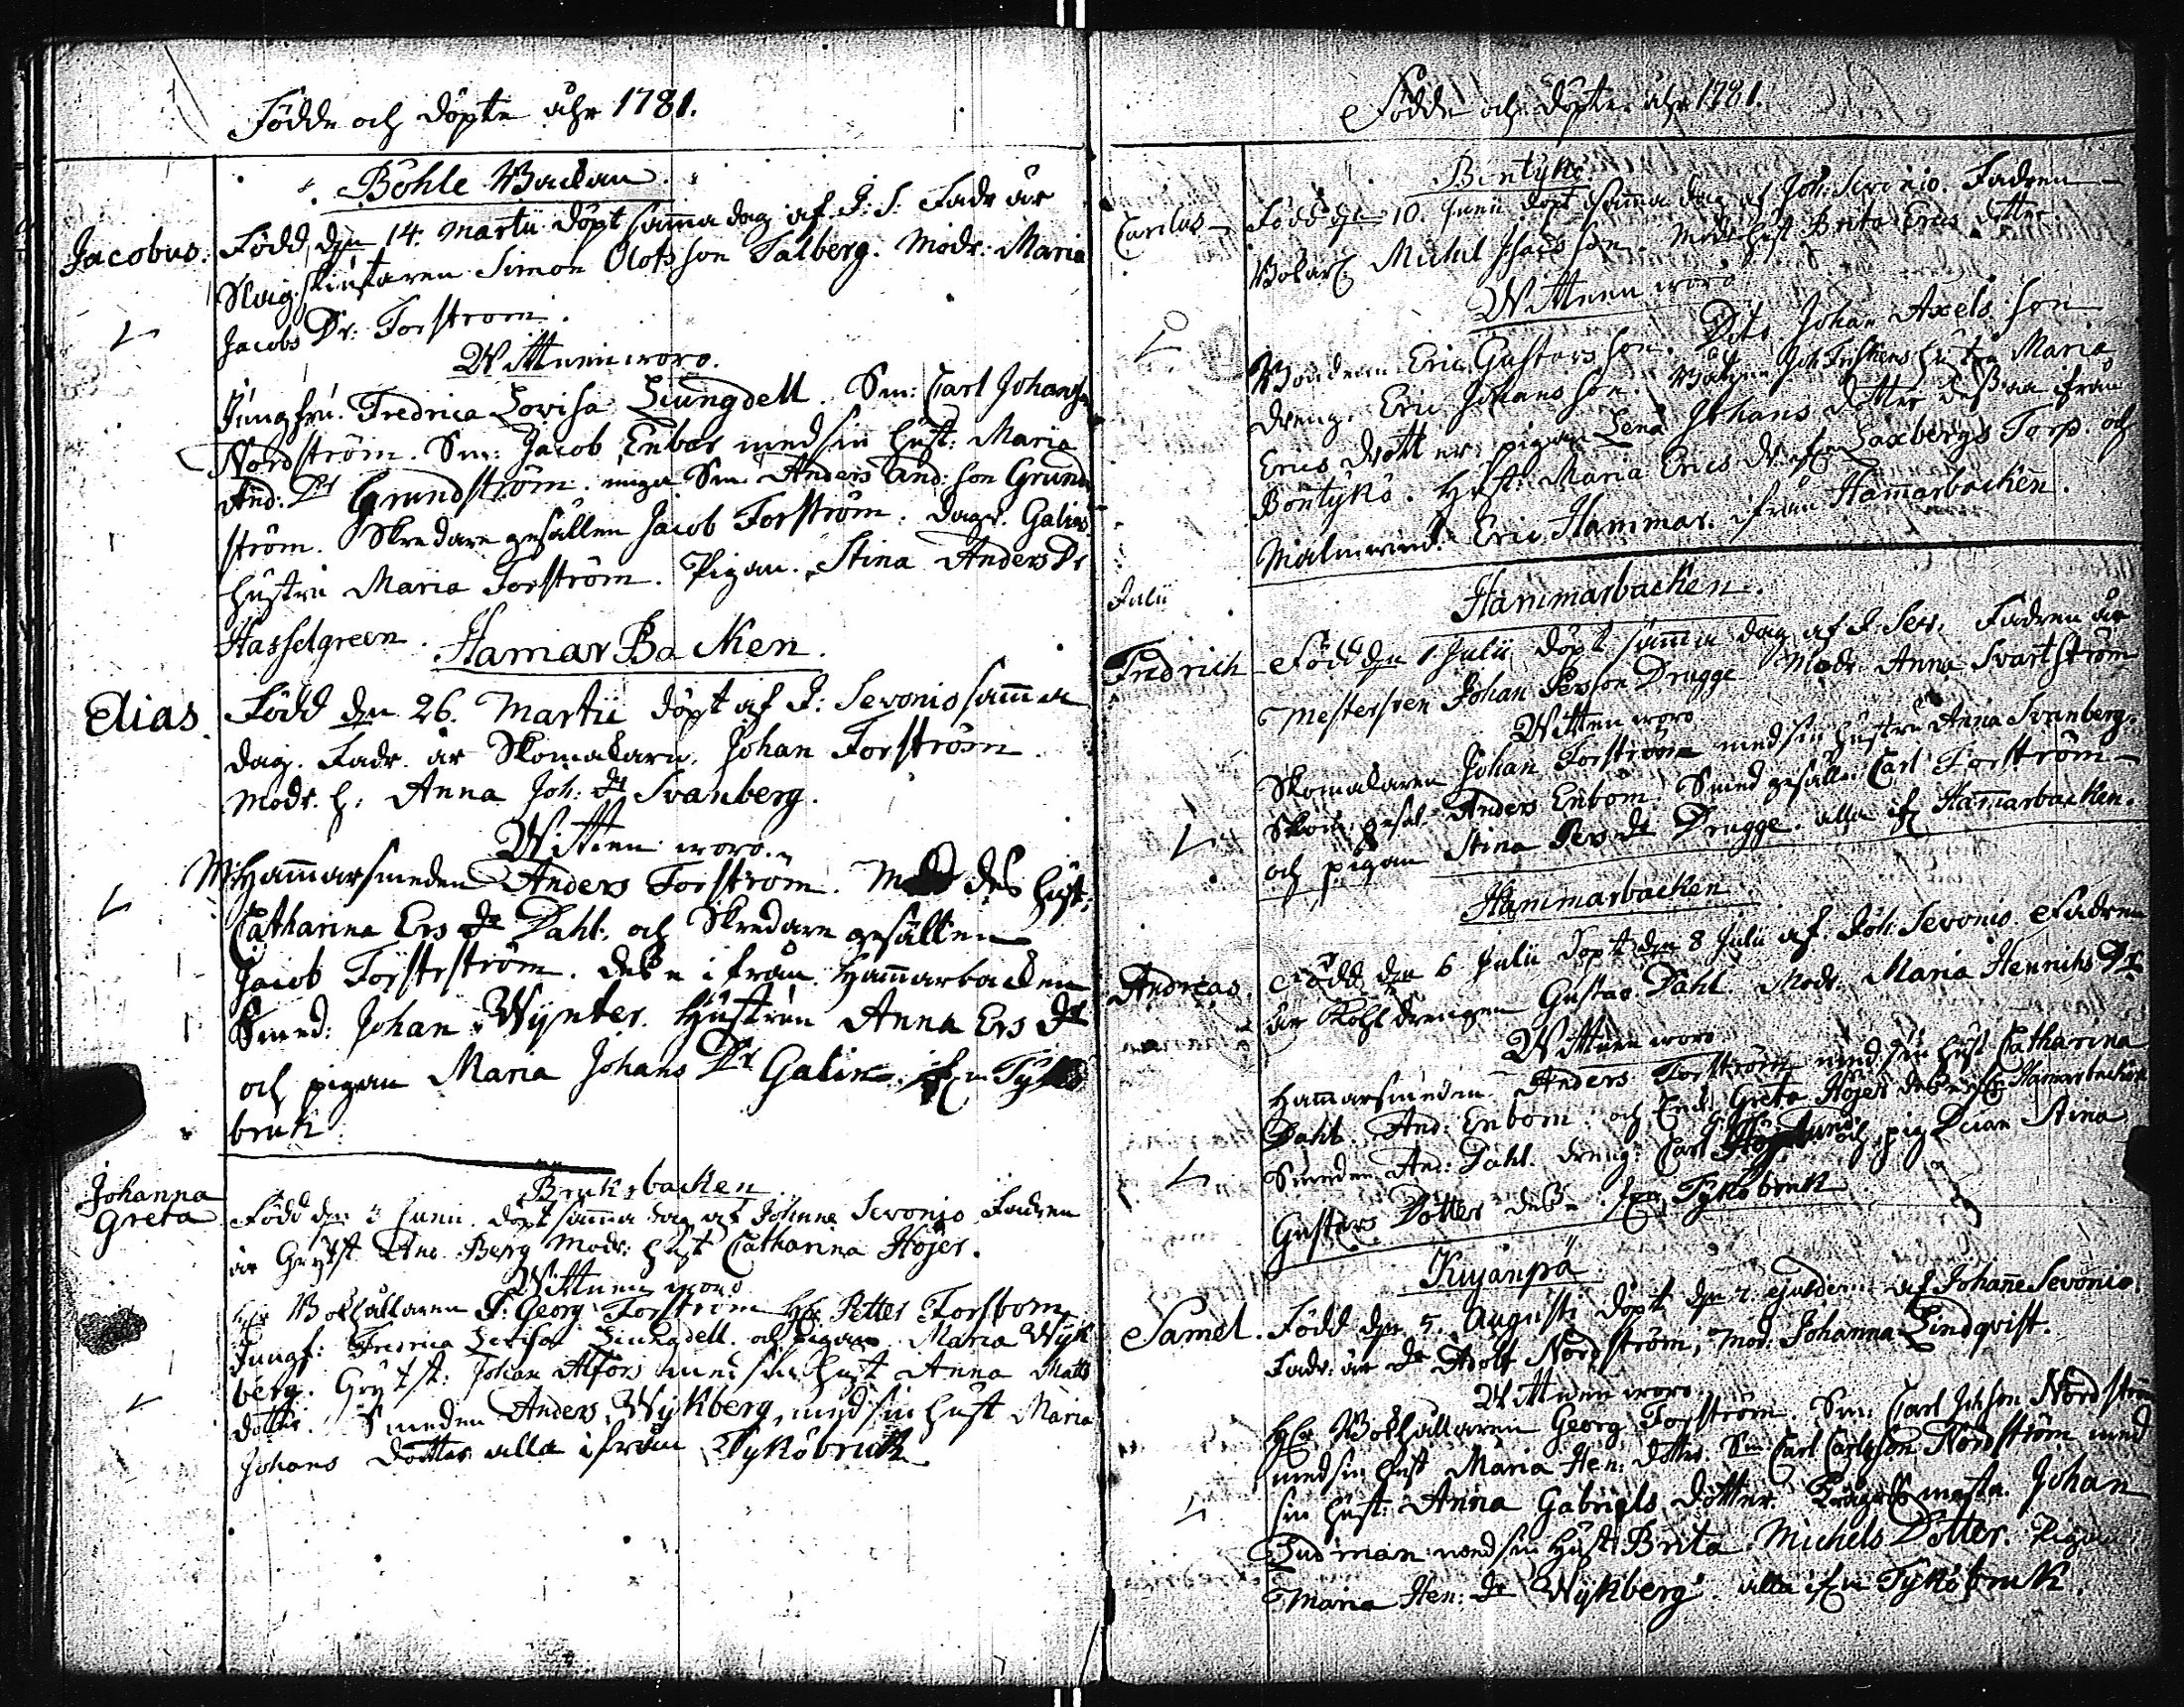 Födde och döpte åhr 1781.
Böhle Backan.
Jacobus. Född den 14. Martii döpt samma dag af J: S: Fadr är
Simon Olofsson Talberg. Modr: Maria
Jacobs Dr: Forstrom.
Wittnen woro.
Jungfru. Fredrica Lovisa Liungdell. Sm: Carl Johansson
Nordström. Sm: Jacob Enbom med sin hust: Maria
And: Dr Grundström. unga Sm: Anders And: son Grund
ström. Skredare gesällen Jacob Forström. Galins
hustru Maria Forström. Pigan. Stina Anders Dr
Hasselgreen.
Hamar Backen.
Elias. Född den 26. Martii döpt af J: Sevonio samma
dag. Fadr. är Skomakarn, Johan Forström
Modr. h: Anna Joh: Dr Svanberg.
Wittnen woro.
M: Hammarsmeden Anders Forström. Med des hust:
Catharina Ers Dr Dahl. och Skredare gesällen
Jacob Forström. ifrån Hammarbacken
Smed: Johan Wynter. Hustrun Anna Ers Dr
och pigan Maria Johans Dr Galin Tykö
bruk.
Bruksbacken
Johanna
Greta Född den 3 Junii. döpt samma dag af Johanne Sevonio Fadren
är And Berg Modr: hust Catharina Höjer.
Wittnen woro
Bokhållaren J: Georg Forström Petter Forsbom
Jungf: Fredrica Lovisa Liungdell. och pigan Maria Wyk
berg. Johan Alfors med sin hust Anna Matts
dotter. Smeden Anders Wykberg, med sin hust Maria
Johans dotter alla ifrån Tykö bruk
Födde och döpte åhr 1781.
Böntykö.
Carolus Född den 10. Junii döpt samma dag af Joh: Sevonio. Fadren
Michel son. Modr hust Brita Erics dotter
Wittnen woro
Bonden Eric Gustavs son. Dito Johan Axels son
dreng. Eric Johans son. hustru Maria
Erics dotter pigan Lena Johans dotter dessa ifrån
Böntykö. hust: Maria Erics Laxbergs Torp. och
Eric Hammar. ifrån Hammarbacken.
Julii
Hammarbacken.
Fredrich Född den 1 Julii döpt samma dag af J Sev. Fadren är
Mestersven Johan Persson Drugge Modr. Anna Svartström
Wittnen woro
Skomakaren Johan Forström med sin hustru Anna Svanberg.
Anders Enbom. Smed gesällen Carl Forström
och pigan Stina Pers Dr Drugge. alla Hammarbacken.
Hammarbacken
Andreas. Född den 6 Julii döpt den 8 Julii af Joh: Sevonio Fadren
är Kohl drengen Gustav Dahl. Modr. Maria Henrichs Dr
Wittnen woro
Hammarsmeden Anders Forström med sin hust Catharina
Dahl. And: Enbom och Greta Höjer Hammarbacken
Smeden And: Dahl. dreng: Carl och Stina
Gustavs Dotter Tykö bruk
Kujanpä
Samel. Född den 5. Augusti döpt den 7. af Johane Sevonio.
Fadr: är Adolf Nordström, Mod: Johanna Lindqvist.
Wittnen woro.
Bokhållaren Georg Forström. Sm: Carl Nordström
med sin hust Maria Hen: dotter. Sm Carl Carlsson Nordström med
sin hust: Anna Gabriels dotter. Johan
Sudman med sin Hust: Brita Michels Dotter. Pigan
Maria Hen: Dr Wykberg. alla Tykö bruk.